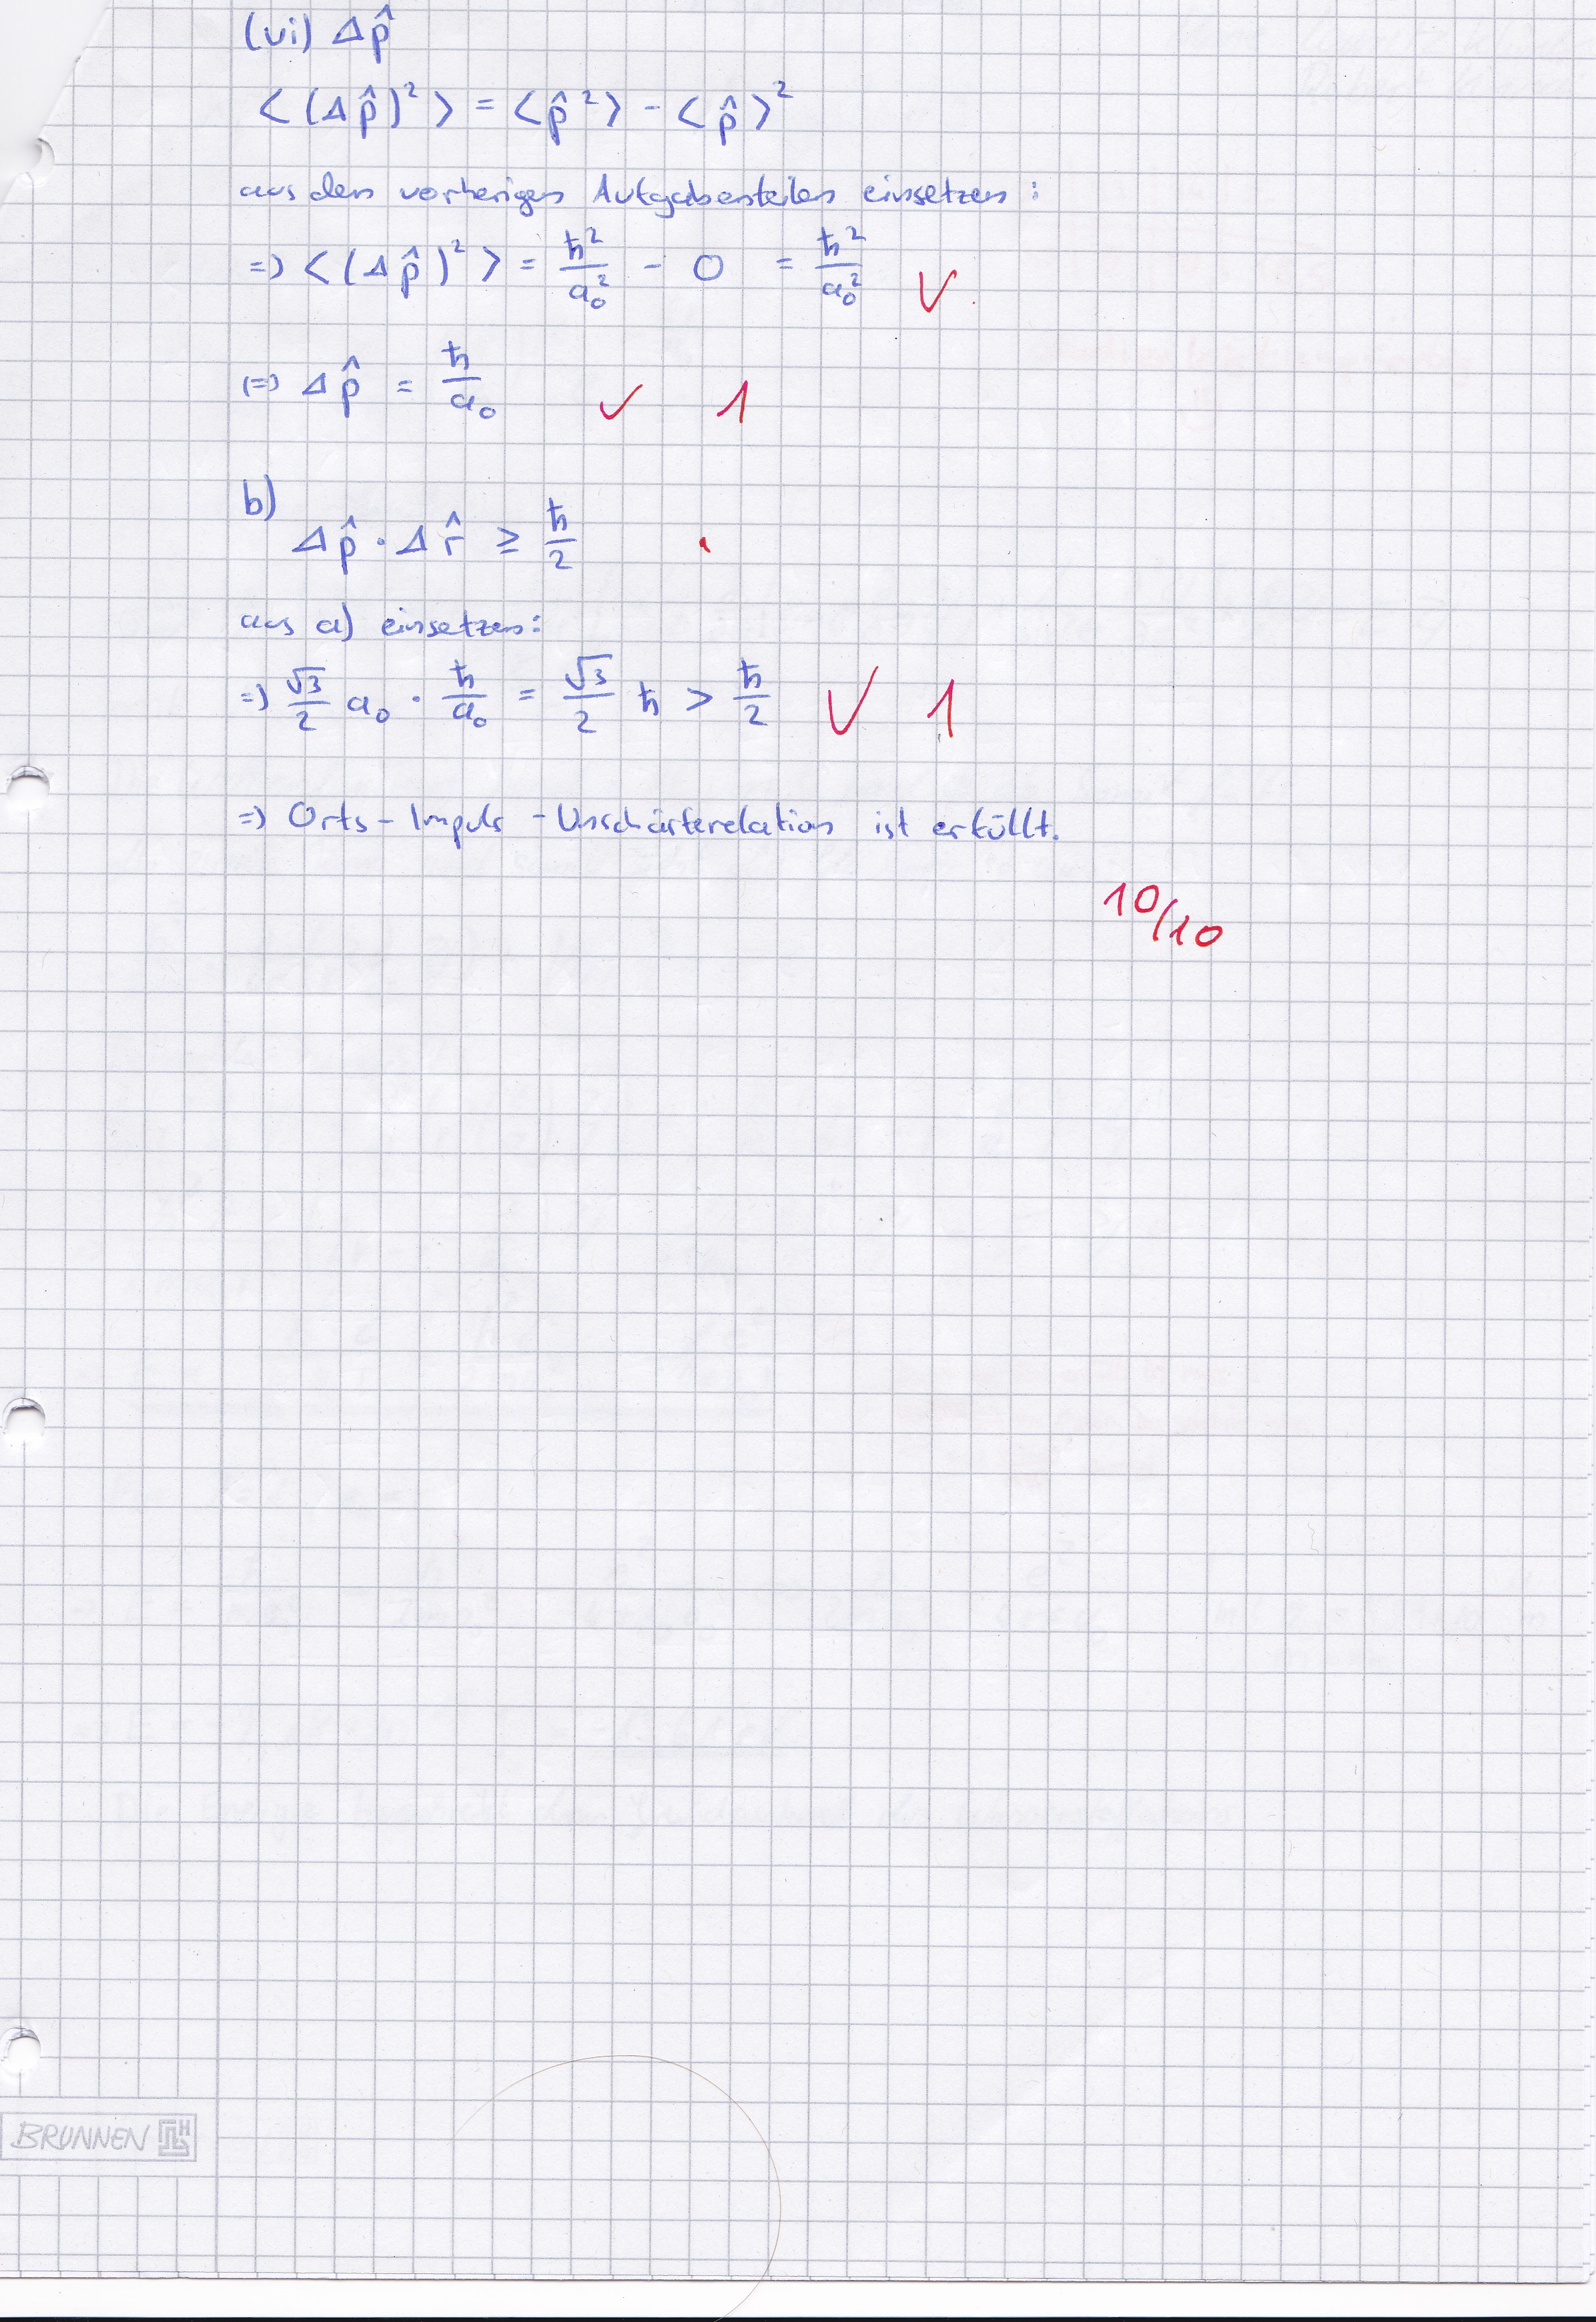 (vi) Δp̂
<(Δp̂)²> = <p̂²> - <p̂>²
aus den vorherigen Aufgabenteilen einsetzen:
=> <(Δp̂)²> = ħ²/a₀² - 0 = ħ²/a₀² ✓
<=> Δp̂ = ħ/a₀ ✓ 1
b)
Δp̂ · Δr̂ ≥ ħ/2
aus a) einsetzen:
=> √3/2 a₀ · ħ/a₀ = √3/2 ħ > ħ/2 ✓ 1
=> Orts-Impuls-Unschärferelation ist erfüllt.
10/10
BRUNNEN